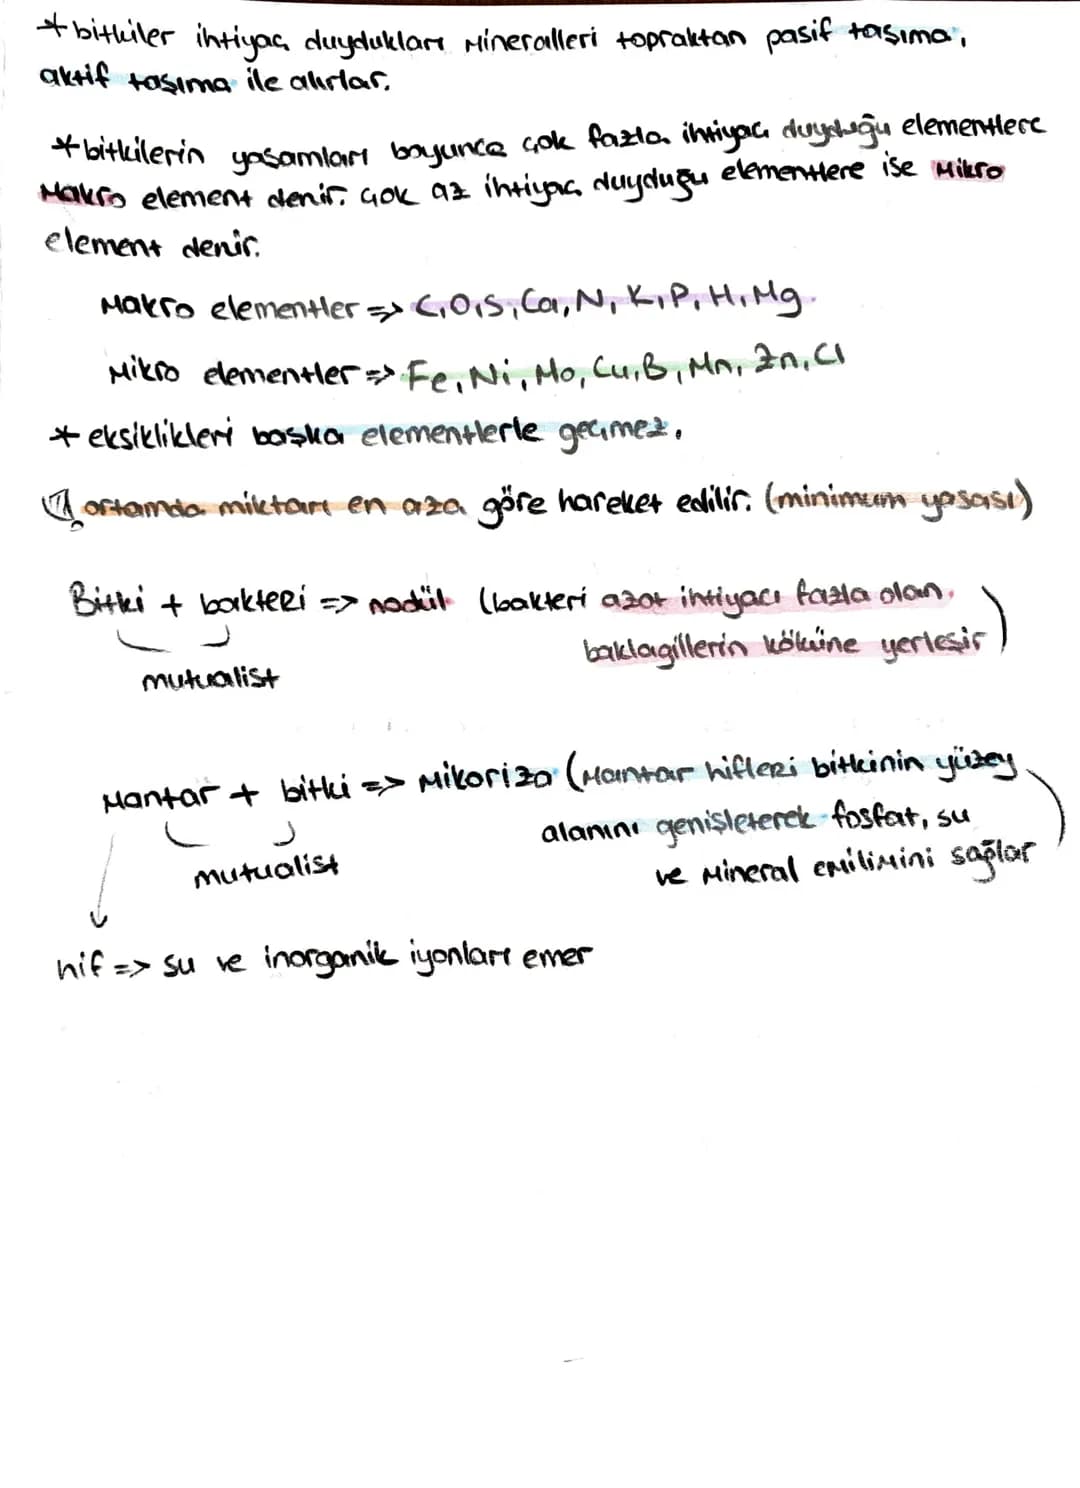 * bitkiler ihtiyaç duydukları Mineralleri topraktan pasif taşıma,
aktif taşıma ile alırlar.
* bitkilerin yaşamları boyunca çok fazla ihtiyacı duyduğu elementlere
Makro element denir. çok az ihtiyaç duyduğu elementlere ise Mikro
element denir.
Makro elementler => C, O, S, Ca, N, K, P, H, Mg.
Mikro elementler => Fe, Ni, Mo, Cu, B, Mn, Zn, Cl
* eksiklikleri başka elementlerle geçmez.
ortamda miktarı en aza göre hareket edilir. (minimum yasası)
Bitki + bakteri => nodül (bakteri azot ihtiyacı fazla olan.
baklagillerin köküne yerleşir)
mutualist
Mantar + bitki => Mikoriza (Mantar hifleri bitkinin yüzey
alanını genişleterek fosfat, su
mutualist
ve Mineral emilimini sağlar)
hif => su ve inorganik iyonları emer